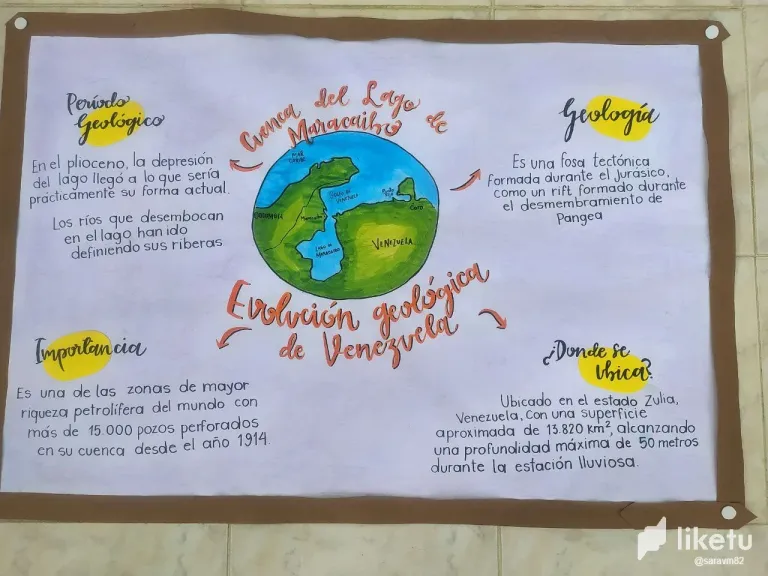 Cuenca del Lago de
Maracaibo
Período
Geológico
En el plioceno, la depresión
del lago llegó a lo que sería
prácticamente su forma actual.
Los ríos que desembocan
en el lago han ido
definiendo sus riberas
Geología
Es una fosa tectónica
formada durante el Jurásico,
como un rift formado durante
el desmembramiento de
Pangea
MAR
CARIBE
GOLFO DE
VENEZUELA
Coro
Maracaibo
LAGO DE
MARACAIBO
VENEZUELA
Evolución geológica
de Venezuela
Importancia
Es una de las zonas de mayor
riqueza petrolífera del mundo con
más de 15.000 pozos perforados
en su cuenca desde el año 1914.
¿Donde se
Ubica?
Ubicado en el estado Zulia,
Venezuela, con una superficie
aproximada de 13.820 km², alcanzando
una profundidad máxima de 50 metros
durante la estación lluviosa.
liketu
@saravm82